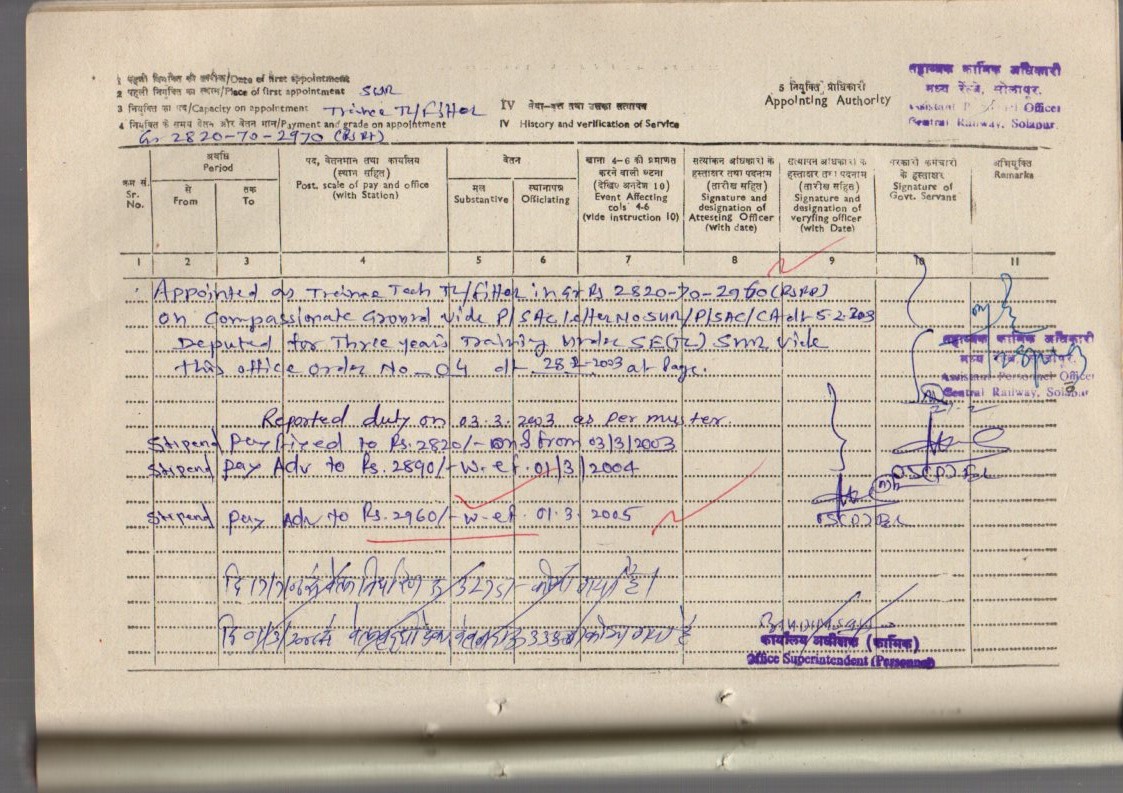 1 पहली नियुक्ति की तारीख/Date of first appointment
2 पहली नियुक्ति का स्थान/Place of first appointment SUR
3 नियुक्ति का पद/Capacity on appointment Trainee TL/Fitter
4 नियुक्ति के समय वेतन और वेतन मान/Payment and grade on appointment
Gr 2820-70-2970 (RSRP)
IV सेवा-वृत्त तथा उसका सत्यापन
IV History and verification of Service
5 नियुक्ति प्राधिकारी
Appointing Authority
सहाय्यक कार्मिक अधिकारी
मध्य रेल्वे, सोलापूर.
Assistant Officer
Central Railway, Solapur.
क्रम सं.
Sr.
No.
अवधि
Period
से
From
तक
To
पद, वेतनमान तथा कार्यालय
(स्थान सहित)
Post, scale of pay and office
(with Station)
वेतन
मूल
Substantive
स्थानापन्न
Officiating
खाना 4-6 की प्रमाणित
करने वाली घटना
(देखिए अनुदेश 10)
Event Affecting
cols 4-6
(vide instruction 10)
सत्यांकन अधिकारी के
हस्ताक्षर तथा पदनाम
(तारीख सहित)
Signature and
designation of
Attesting Officer
(with date)
सत्यापन अधिकारी के
हस्ताक्षर तथा पदनाम
(तारीख सहित)
Signature and
designation of
veryfing officer
(with Date)
सरकारी कर्मचारी
के हस्ताक्षर
Signature of
Govt. Servant
अभियुक्ति
Remarks
1 2 3 4 5 6 7 8 9 10 11
Appointed as Trainee Tech TL/Fitter in Gr Rs 2820-70-2960 (RSRP)
on Compassionate Ground vide P/SAC letter No SUR/P/SAC/CA dt 5.2.203
Deputed for Three years Training under SE(TL) SUR vide
this office order No 04 dt 28-2-2003 at Page.
सहाय्यक कार्मिक अधिकारी
मध्य
Assistant Personnel Officer
Central Railway, Solapur
Reported duty on 03.3.2003 as per muster
Stipend pay fixed to Rs. 2820/- from 03/3/2003
Stipend pay Adv to Rs. 2890/- w.ef. 01/3/2004
Stipend pay Adv to Rs. 2960/- w.ef. 01.3.2005
कार्यालय अधीक्षक (कार्मिक)
Office Superintendent (Personnel)